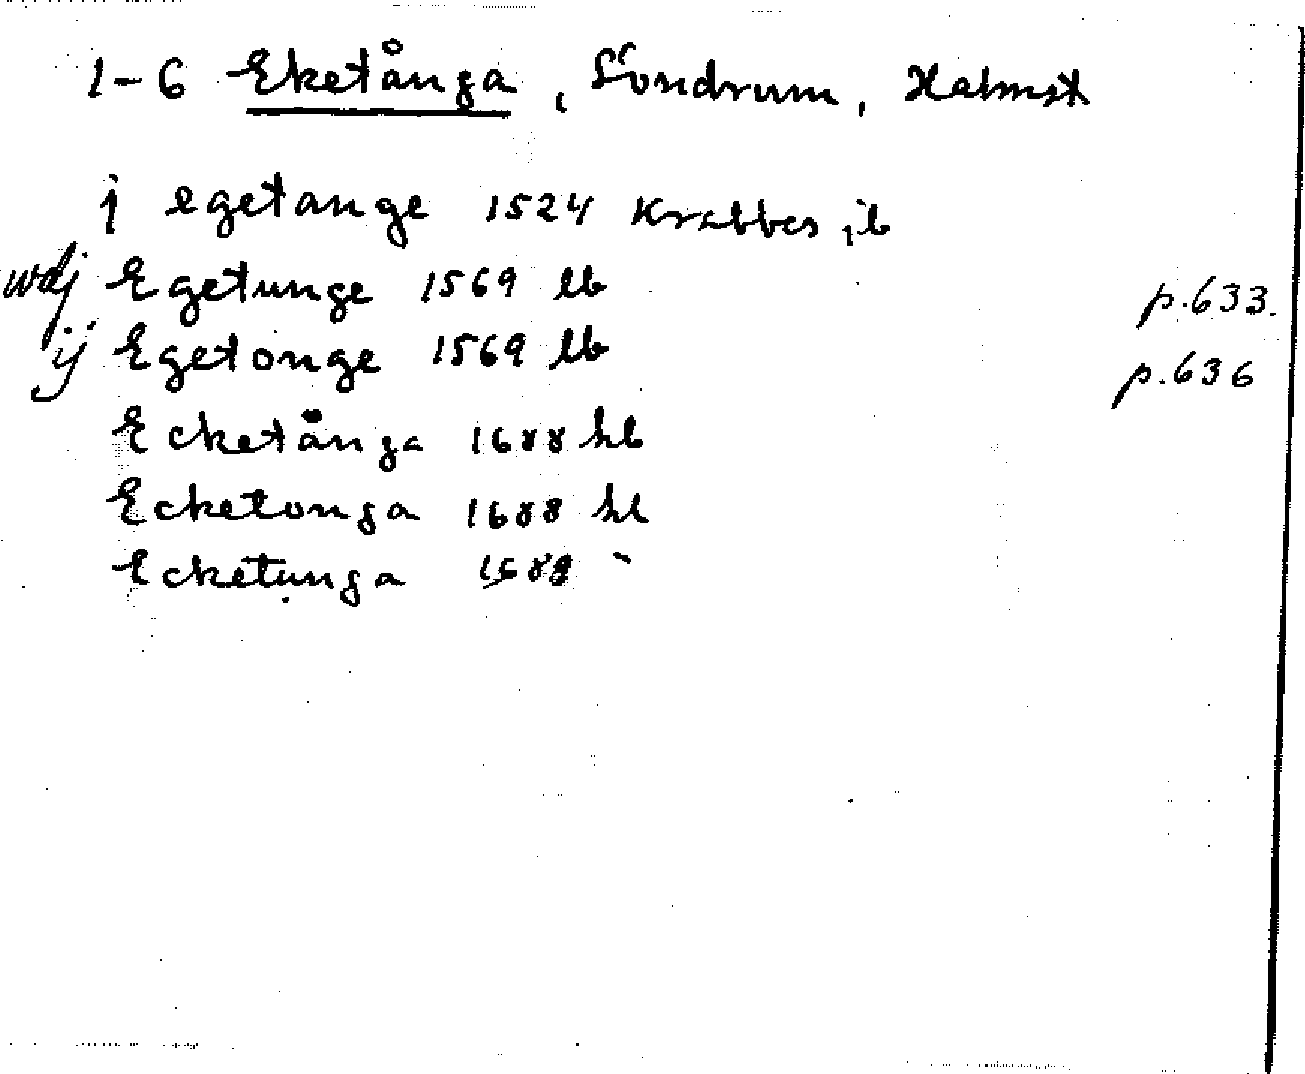 1-6 Eketånga, Söndrum, Halmst
j egetange 1524 Krabbes jb
wdj Egetunge 1569 lb p.633.
ij Egetonge 1569 lb p.636
Ecketånga 1688 hb
Ecketonga 1688 hb
Ecketunga 1688 "